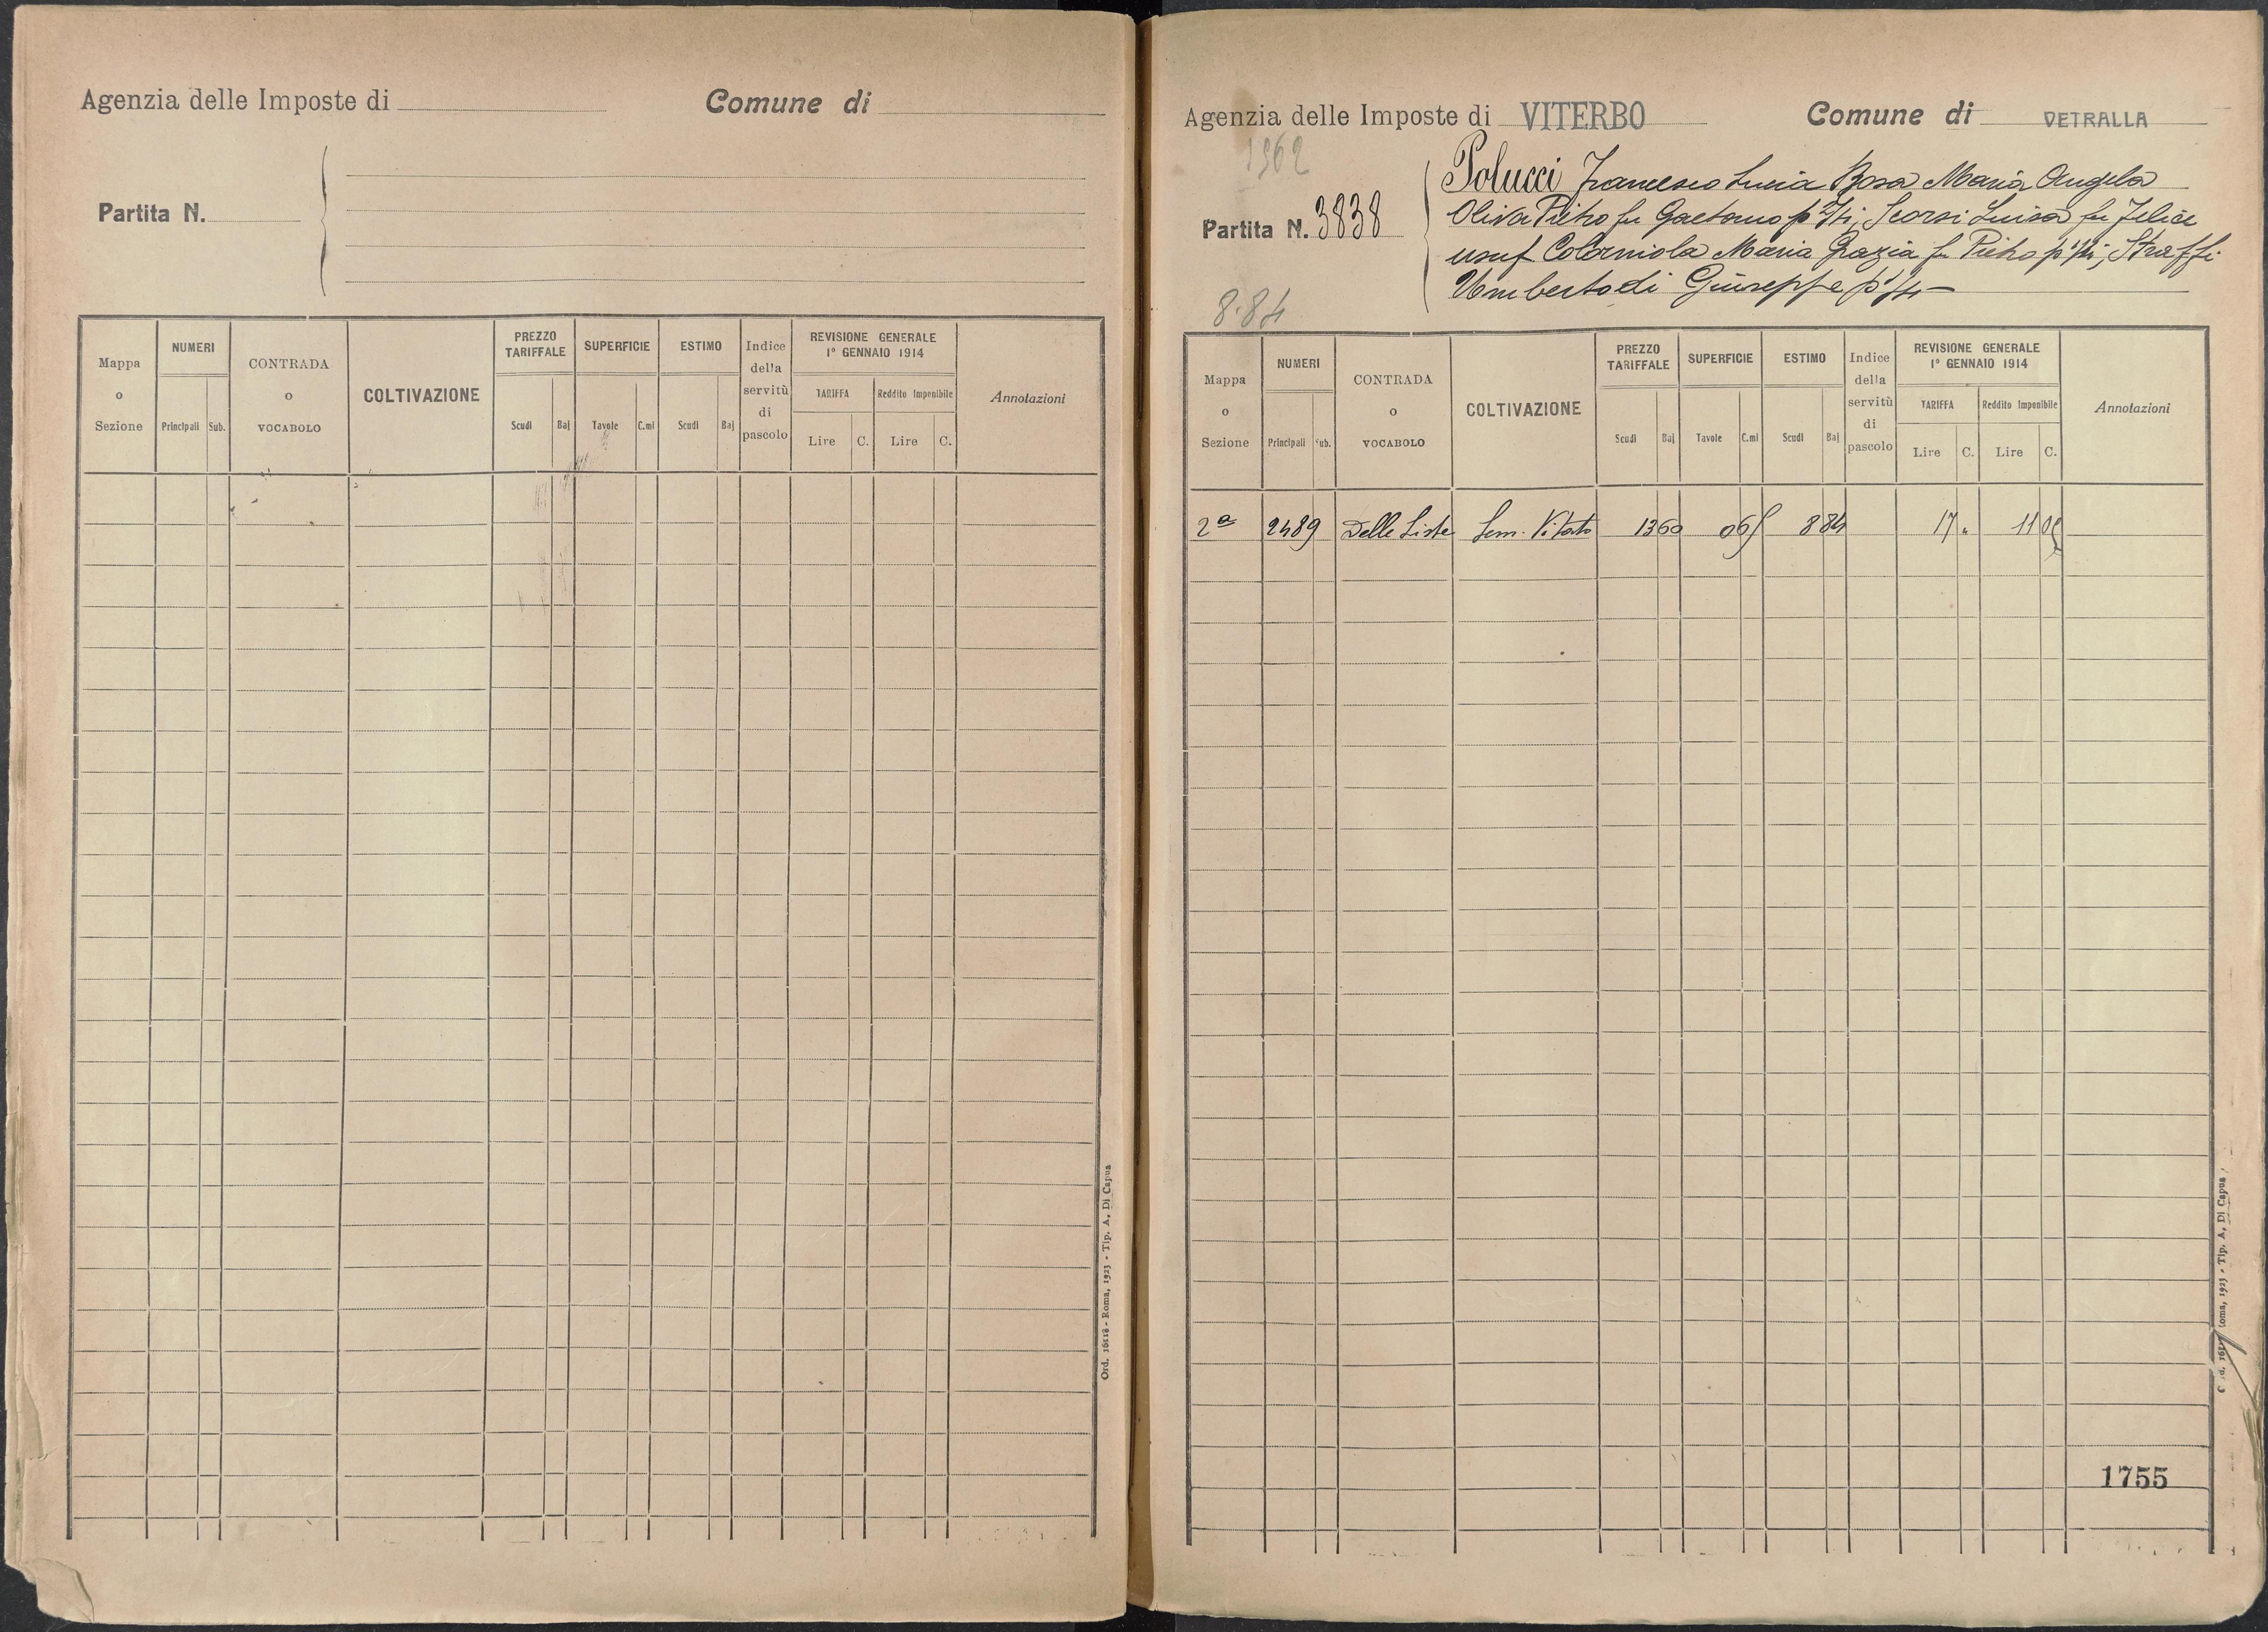 Agenzia delle Imposte di
Comune di
Partita N.
Mappa o Sezione
NUMERI
Principali Sub.
CONTRADA o VOCABOLO
COLTIVAZIONE
PREZZO TARIFFALE
Scudi Baj
SUPERFICIE
Tavole C.mi
ESTIMO
Scudi Baj
Indice della servitù di pascolo
REVISIONE GENERALE
1° GENNAIO 1914
TARIFFA Reddito Imponibile
Lire C. Lire C.
Annotazioni
Ord. 16118 - Roma, 1923 - Tip. A. Di Capua
Agenzia delle Imposte di VITERBO Comune di VETRALLA
1362
Partita N. 3838
Polucci Francesco Lucia Rosa Maria Angela
Oliva Pietro fu Gaetano p 2/4; Scorsi Luisa fu Felice
usuf Colorniola Maria Grazia fu Pietro p 1/4; Straffi
Umberto di Giuseppe p 1/4
8.84
Mappa o Sezione
NUMERI
Principali Sub.
CONTRADA o VOCABOLO
COLTIVAZIONE
PREZZO TARIFFALE
Scudi Baj
SUPERFICIE
Tavole C.mi
ESTIMO
Scudi Baj
Indice della servitù di pascolo
REVISIONE GENERALE
1° GENNAIO 1914
TARIFFA Reddito Imponibile
Lire C. Lire C.
Annotazioni
2a 2489 Delle Liste Sem. Vitato 13 60 0 65 8 84 17 " 11 05
1755
Roma, 1923 - Tip. A. Di Capua